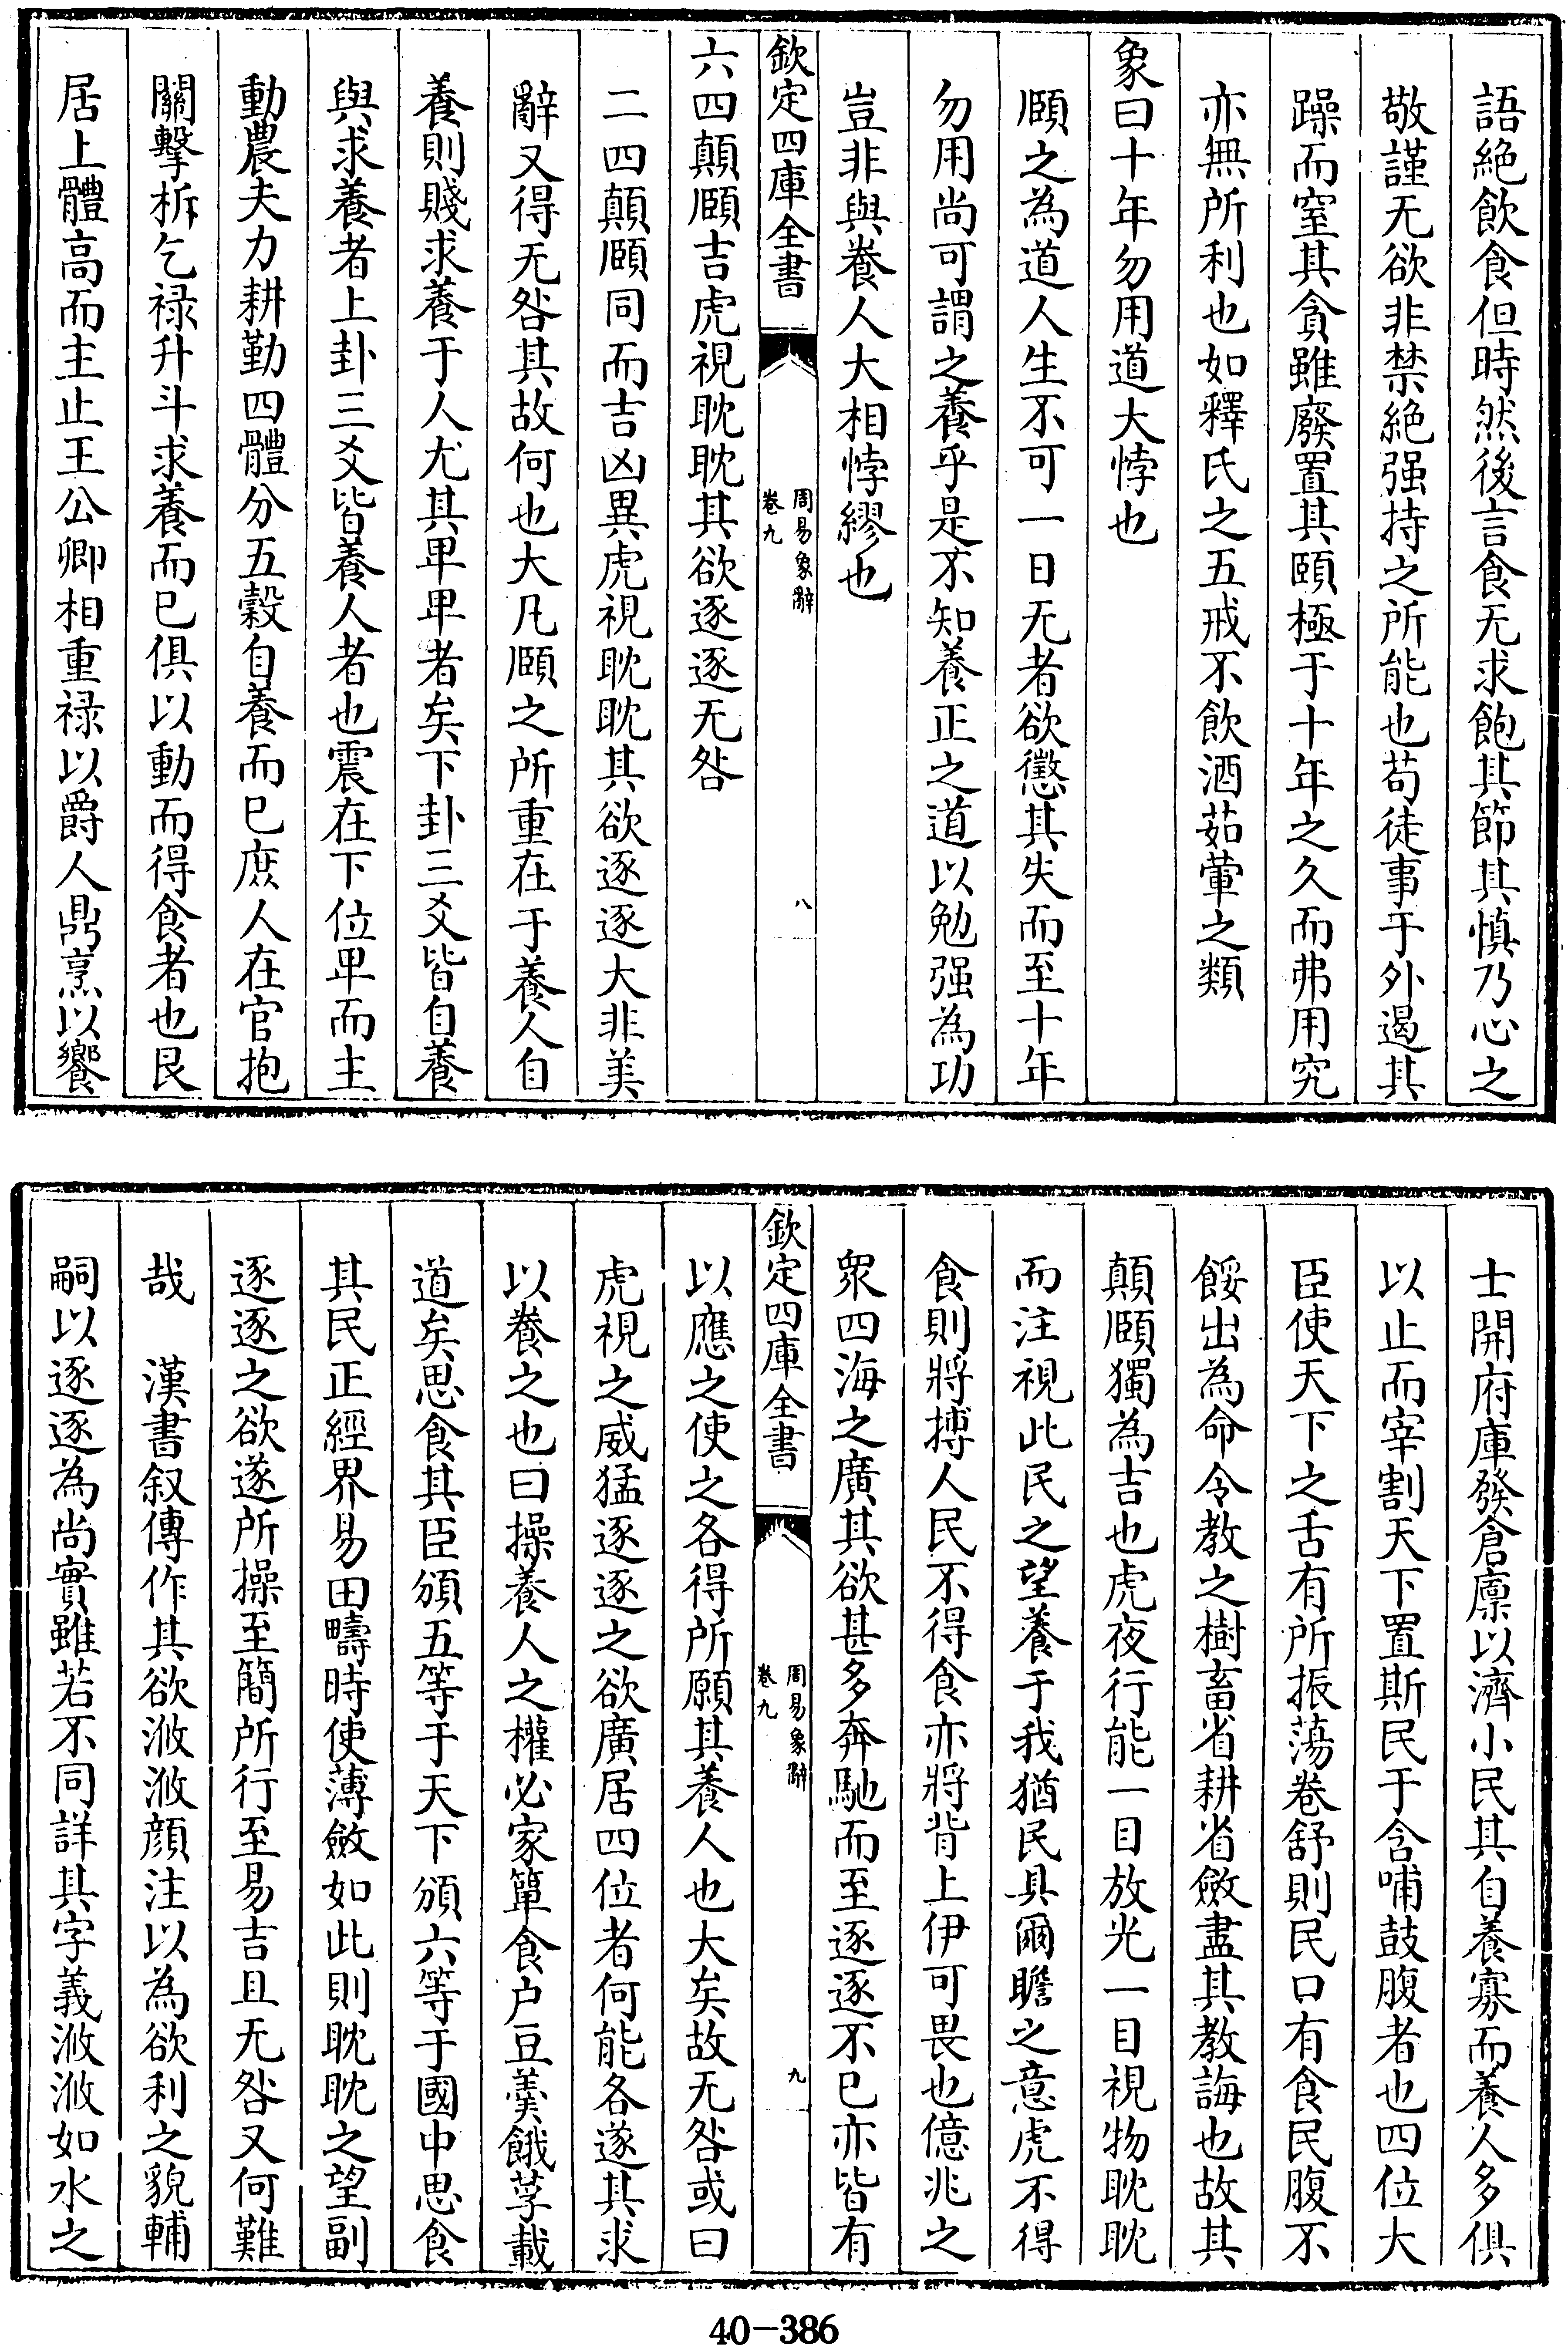 語絶飲食但時然後言食无求飽其節其慎乃心之
敬謹无欲非禁絶强持之所能也苟徒事于外遏其
躁而窒其貪雖廢置其頤極于十年之久而弗用究
亦無所利也如釋氏之五戒不飲酒茹葷之類
象曰十年勿用道大悖也
頤之為道人生不可一日无者欲懲其失而至十年
勿用尚可謂之養乎是不知養正之道以勉强為功
豈非與養人大相悖繆也
欽定四庫全書
周易象辭
卷九
八
六四顛頤吉虎視耽耽其欲逐逐无咎
二四顛頤同而吉凶異虎視耽耽其欲逐逐大非美
辭又得无咎其故何也大凡頤之所重在于養人自
養則賤求養于人尤其卑卑者矣下卦三爻皆自養
與求養者上卦三爻皆養人者也震在下位卑而主
動農夫力耕勤四體分五榖自養而已庶人在官抱
關擊柝乞禄升斗求養而已俱以動而得食者也艮
居上體高而主止王公卿相重禄以爵人鼎烹以饗
士開府庫發倉廪以濟小民其自養寡而養人多俱
以止而宰割天下置斯民于含哺鼓腹者也四位大
臣使天下之舌有所振蕩卷舒則民口有食民腹不
餒出為命令教之樹畜省耕省斂盡其教誨也故其
顛頤獨為吉也虎夜行能一目放光一目視物耽耽
而注視此民之望養于我猶民具爾瞻之意虎不得
食則將搏人民不得食亦將背上伊可畏也億兆之
衆四海之廣其欲甚多奔馳而至逐逐不已亦皆有
欽定四庫全書
周易象辭
卷九
九
以應之使之各得所願其養人也大矣故无咎或曰
虎視之威猛逐逐之欲廣居四位者何能各遂其求
以養之也曰操養人之權必家簞食户豆羮餓莩載
道矣思食其臣頒五等于天下頒六等于國中思食
其民正經界易田疇時使薄斂如此則耽耽之望副
逐逐之欲遂所操至簡所行至易吉且无咎又何難
哉　漢書叙傳作其欲浟浟顔注以為欲利之貌輔
嗣以逐逐為尚實雖若不同詳其字義浟浟如水之
40-386